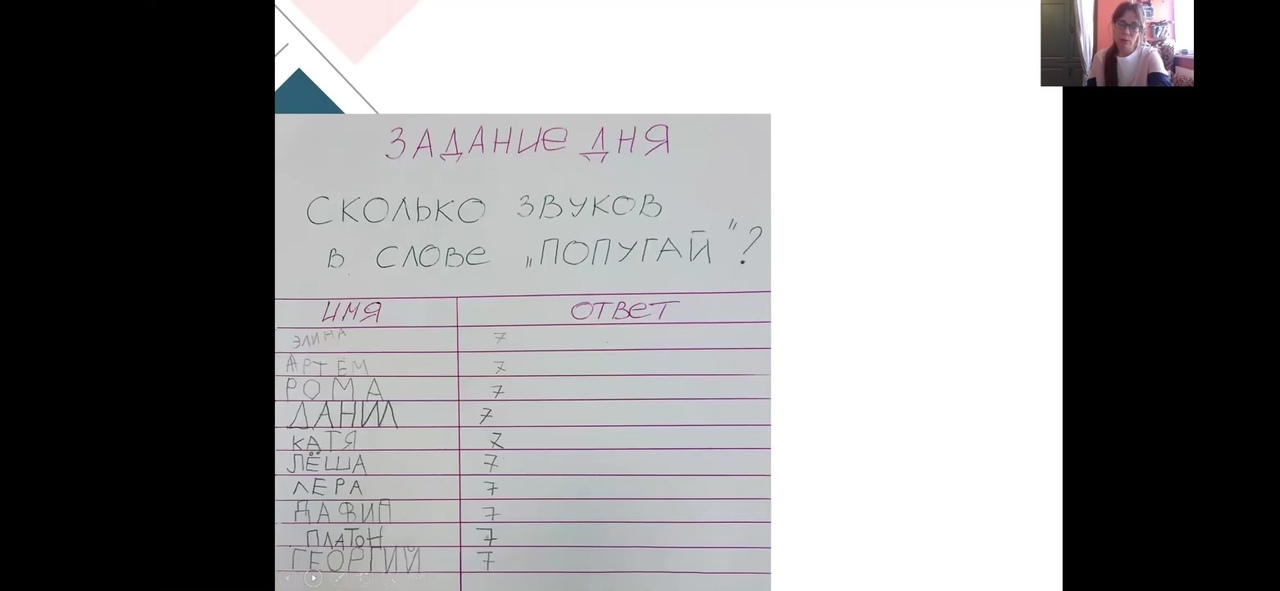 ЗАДАНИЕ ДНЯ
СКОЛЬКО ЗВУКОВ
В СЛОВЕ „ПОПУГАЙ"?
ИМЯ ОТВЕТ
ЭЛИНА 7
АРТЁМ 7
РОМА 7
ДАНИЛ 7
КАТЯ 7
ЛЁША 7
ЛЕРА 7
ДАВИД 7
ПЛАТОН 7
ГЕОРГИЙ 7